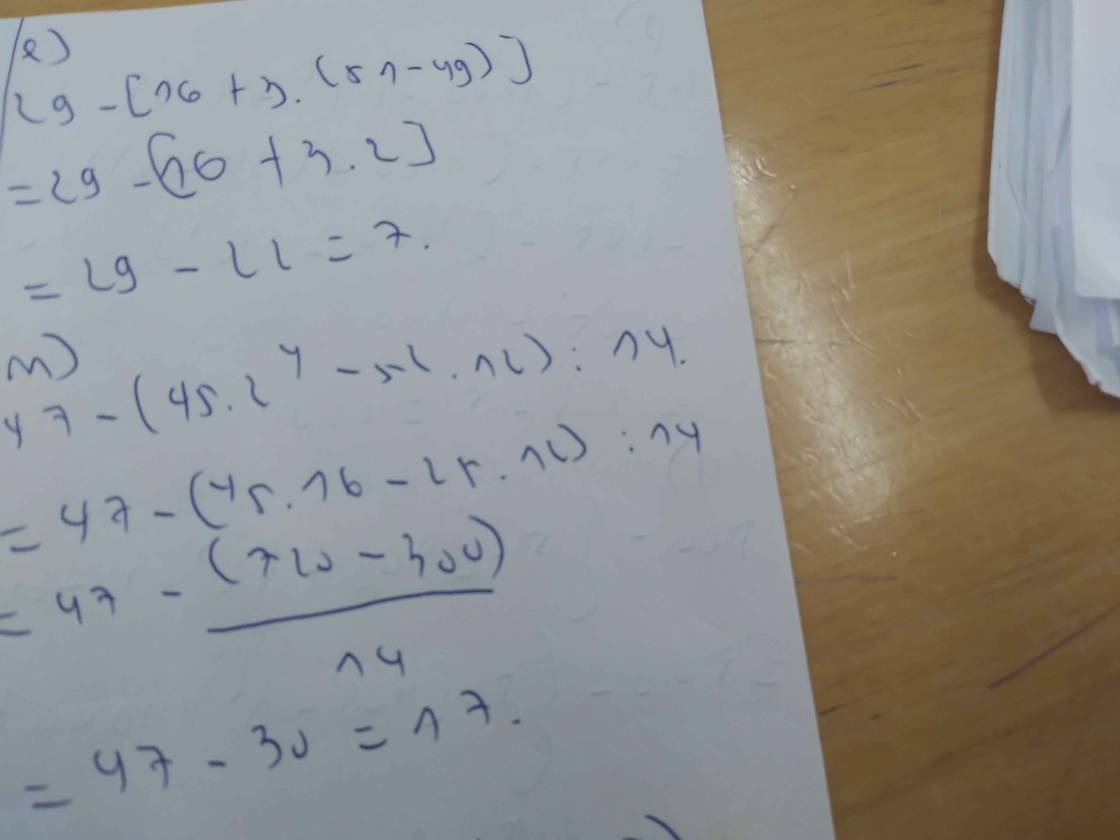 e)
29 - [16 + 3. (51 - 49)]
= 29 - [16 + 3. 2]
= 29 - 22 = 7.
m)
47 - (45. 2⁴ - 5². 12) : 14.
= 47 - (45. 16 - 25. 12) : 14
= 47 - (720 - 300)
14
= 47 - 30 = 17.